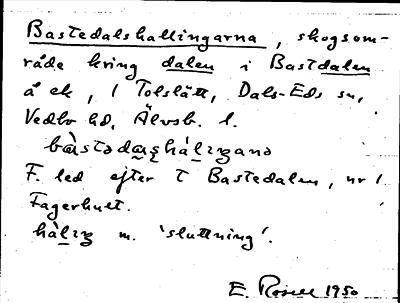 Bastedalshallingarna, skogsom-
råde kring dalen i Bastdalen
å ek, 1 Tolslätt, Dals-Eds sn,
Vedbo hd, Älvsb. l.
bàstədaʂhálıŋanə
F. led efter t Bastedalen, nr 1
Fagerhult.
hàlıŋ m. 'sluttning'.
E. Rosell 1950